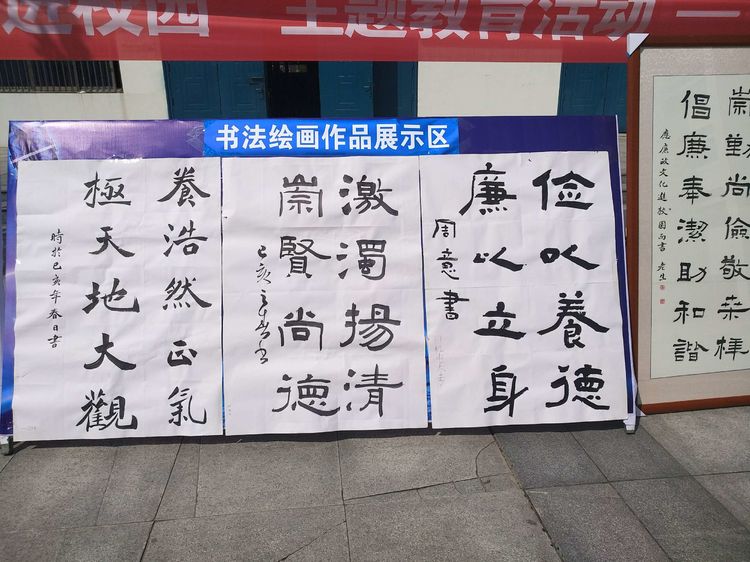 进校园 主题教育活动一
书法绘画作品展示区
俭以養德
廉以立身
周意書
激濁揚清
崇賢尚德
養浩然正氣
極天地大觀
時於己亥年春日書
崇勤尚儉敬業
倡廉奉潔助和諧
應廉政文化進校園而書